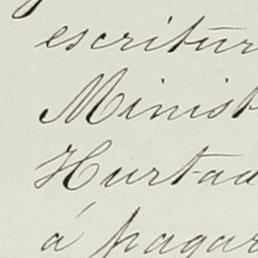 escritur
Minist
Hurtad
á pagar